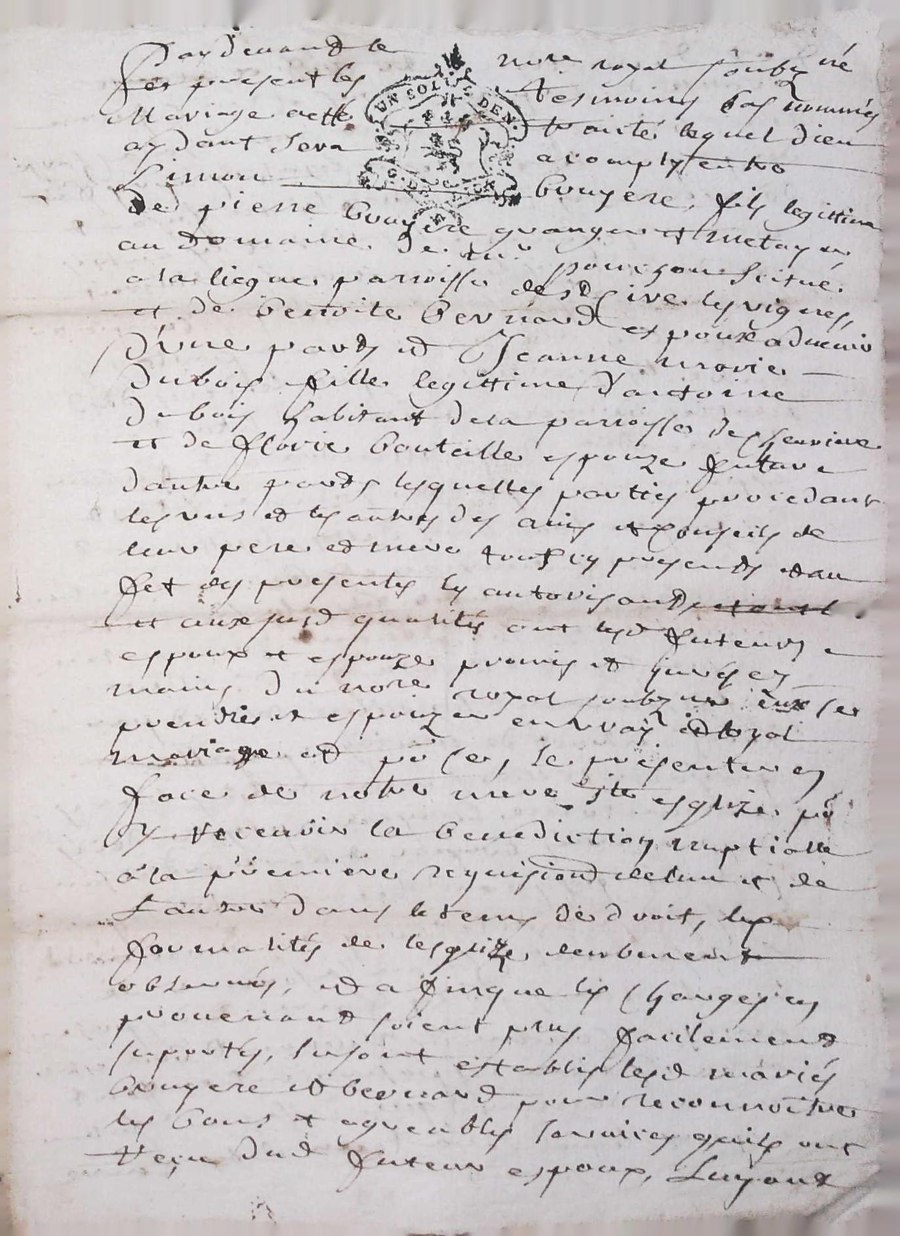 Pardevand le nore royal soubz né
fes present les tesmoins bas nommés
Mariage acte traicté lequel dieu
aydant sera acomply entre
Simon bouyere, fils legittime
De pierre bouyere granger et metayer
au domaine de pour son scitué
a la liegue parroisse de st
et de benoite bernard espoux aduenir
d'une pard et Jeanne marie
Dubois fille legittime d'antoine
dubois habitant de la parroisse de
et de florie bouteille espouze future
dautre pards lesquelles parties procedant
les uns et les autres des auis et conseils de
leur pere et mere tous icy presends et au
fet des presentes les autorisands
et aux susd qualités ont lesd futeurs
espoux et espouze promis et jurés es
mains du nore royal soubzne eux ser
prendre et espouzer en vray et loyal
mariage et po ce, se presenter en
face de notre mere ste esglize po
y receuoir la benediction nuptialle
a la premiere requisiond de lun et de
l'autre dans le tems de droit, les
formalités de lesglize, deubment
obserués, et a fin que les charges en
prouenand soient plus facilemend
suportés, se sont establis lesd mariés
bouyere et bernard pour reconnoitre
les bons et agreables seruices quils ont
reçu dud futeur espoux, luy ont
UN SOL DEN.
G. DE